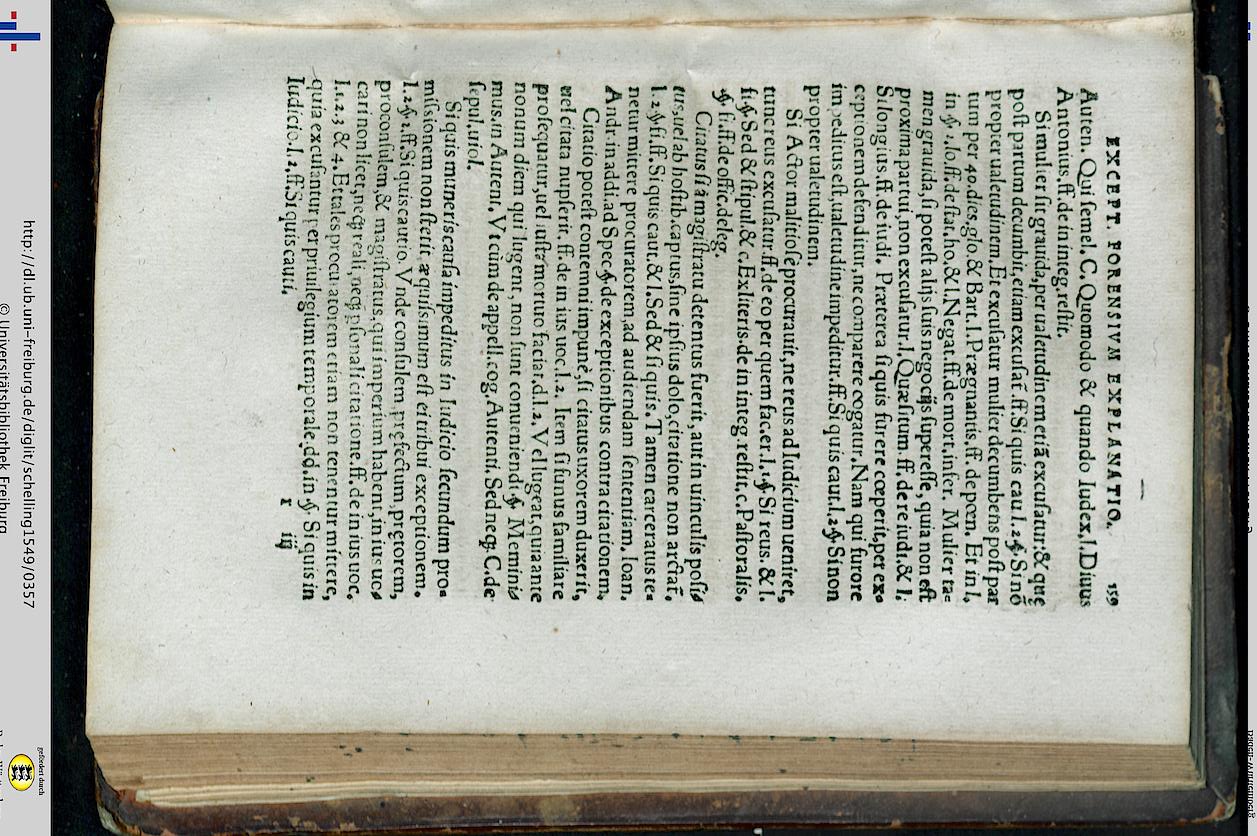 EXCEPT. FORENSIVM EXPLANATIO. 159
Auten. Qui semel, C. Quomodo & quando Iudex, l. Diuus
Antonius, ff. de in integ. restit.
Si mulier sit grauida, per ualetudinem etiã excusatur: & quę
post partum decumbit, etiam excusat̃. ff. Si quis cau. l. 2. §. Si nõ
proper ualetudinem. Et excusatur mulier decumbens post par
tum per 40. dies, glo. & Bart. l. Prægnantis. ff. de pœn. Et in l.
in §. 1. fo. ff. de stat. ho. & l. Negat. ff. de mort. infer. Mulier ta=
men grauida, si potest alijs suis negocijs superesse, quia non est
proxima partui, non excusatur. l. Quæsitum. ff. de re iudi. & l.
Si longius. ff. de iudi. Præterea si quis furere cœperit, per ex=
ceptionem defenditur, ne comparere cogatur. Nam qui furore
impeditus est, ualetudine impeditur. ff. Si quis caut. l. 2. §. Si non
propter ualetudinem.
Si Actor malitiosè procurauit, ne reus ad Iudicium ueniret,
tunc reus excusatur. ff. de eo per quem fac. er. l. 1. §. Si reus. & l.
fi. §. Sed & si stipul. & c. Ex literis. de in integ. restit. c. Pastoralis.
§. fi. ff. de offic. deleg.
Citatus si à magistratu detentus fuerit, aut in uinculis posi=
tus, uel ab hostib. captus, sine ipsius dolo, citatione non arctat̃.
l. 2. §. fi. ff. Si quis caut. & l. Sed & si quis. Tamen carceratus te=
netur mittere procuratorem, ad audiendam sententiam. Ioan.
Andr. in addi. ad Spec. §. de exceptionibus contra citationem.
Citatio potest contemni impunè, si citatus uxorem duxerit,
uel citata nupserit. ff. de in ius uoc. l. 2. Item si funus familiare
prosequatur, uel iusta mortuo faciat. d. l. 2. Vel lugeat, quia ante
nonum diem qui lugent, non sunt conueniendi. §. Memini=
mus. in Autent. Vt cum de appell. cog. Autenti. Sed neq́. C. de
sepul. uiol.
Si quis muneris causa impeditus in Iudicio secundum pro=
missionem non steterit, æquissimum est ei tribui exceptionem.
l. 2. §. 2. ff. Si quis cautio. Vnde consulem, pręfectum, prętorem,
proconsulem, & magistratus, qui imperium habent, in ius uo=
cari non licet, neq́ reali, neq́ p̱sonali citatione. ff. de in ius uoc.
l. 1. 2. 3. & 4. Et tales procuratorem etiam non tenentur mittere,
quia excusantur per priuilegium temporale. dd. in §. Si quis in
Iudicio. l. 2. ff. Si quis cauti.
r iij
http://dl.ub.uni-freiburg.de/diglit/schelling1549/0357
© Universitätsbibliothek Freiburg
gefördert durch